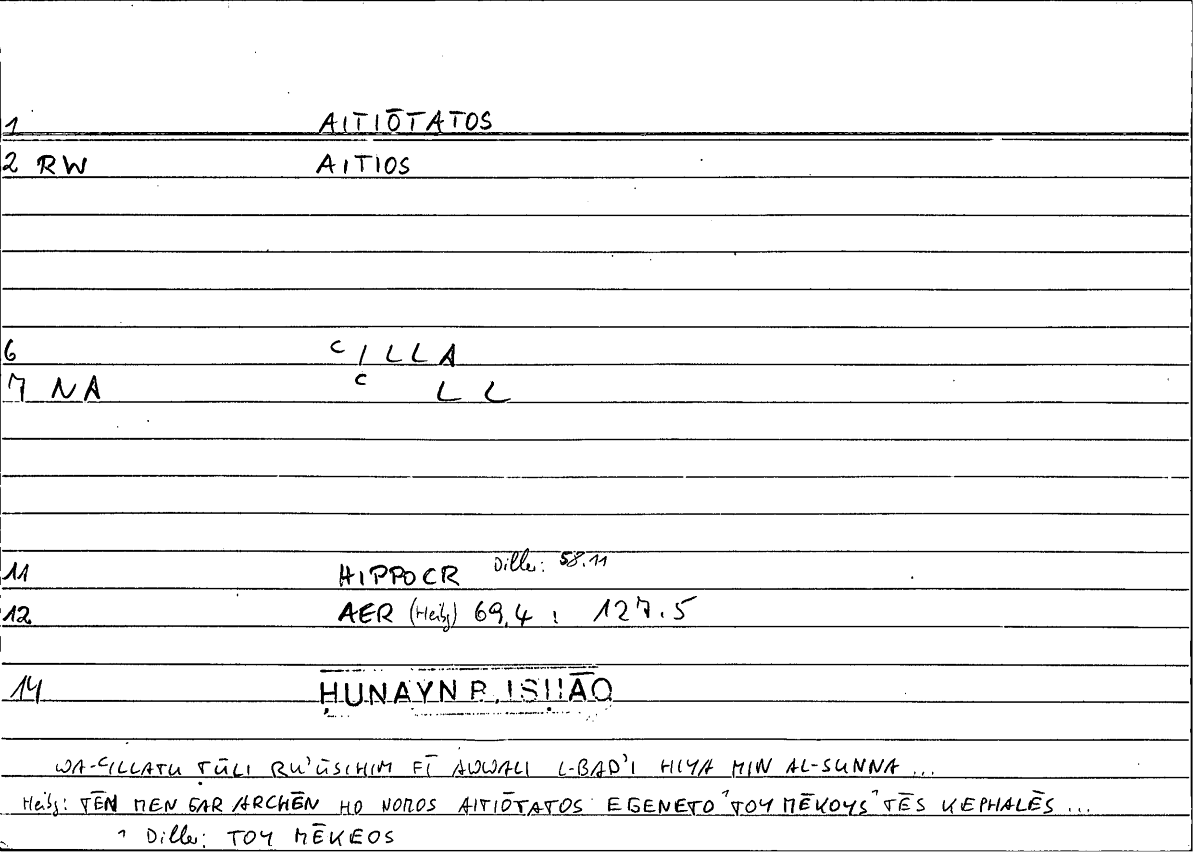 1 AITIŌTATOS
2 RW AITIOS
6 ᶜILLA
7 NA ᶜ L L
11 HIPPOCR Diller: 58.11
12 AER (Heibg) 69,4 : 127.5
14 ḤUNAYN B. ISḤĀQ
WA-ᶜILLATU ṬŪLI RU'ŪSIHIM FĪ AWWALI L-BAD'I HIYA MIN AL-SUNNA ...
Heibg: TĒN MEN GAR ARCHĒN HO NOMOS AITIŌTATOS EGENETO ¹TOY MĒKOYS¹ TĒS KEPHALĒS ...
¹ Diller: TOY MĒKEOS